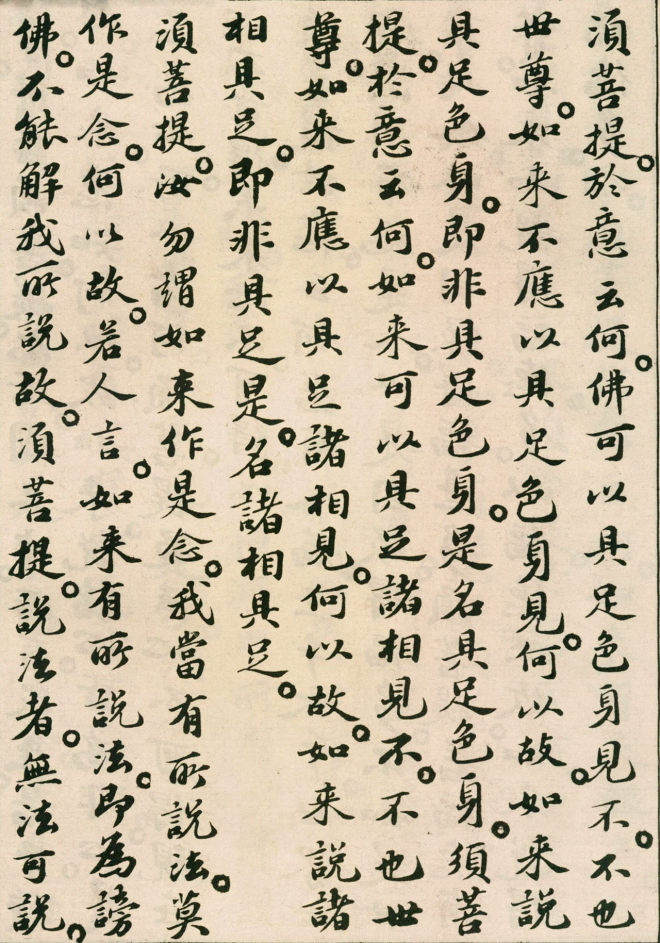 須菩提。於意云何。佛可以具足色身見不。不也
世尊。如来不應以具足色身見。何以故。如来説
具足色身。即非具足色身。是名具足色身。須菩
提。於意云何。如来可以具足諸相見不。不也世
尊。如来不應以具足諸相見。何以故。如来説諸
相具足。即非具足。是名諸相具足。
須菩提。汝勿謂如来作是念。我當有所説法。莫
作是念。何以故。若人言。如来有所説法。即為謗
佛。不能解我所説故。須菩提。説法者。無法可説。